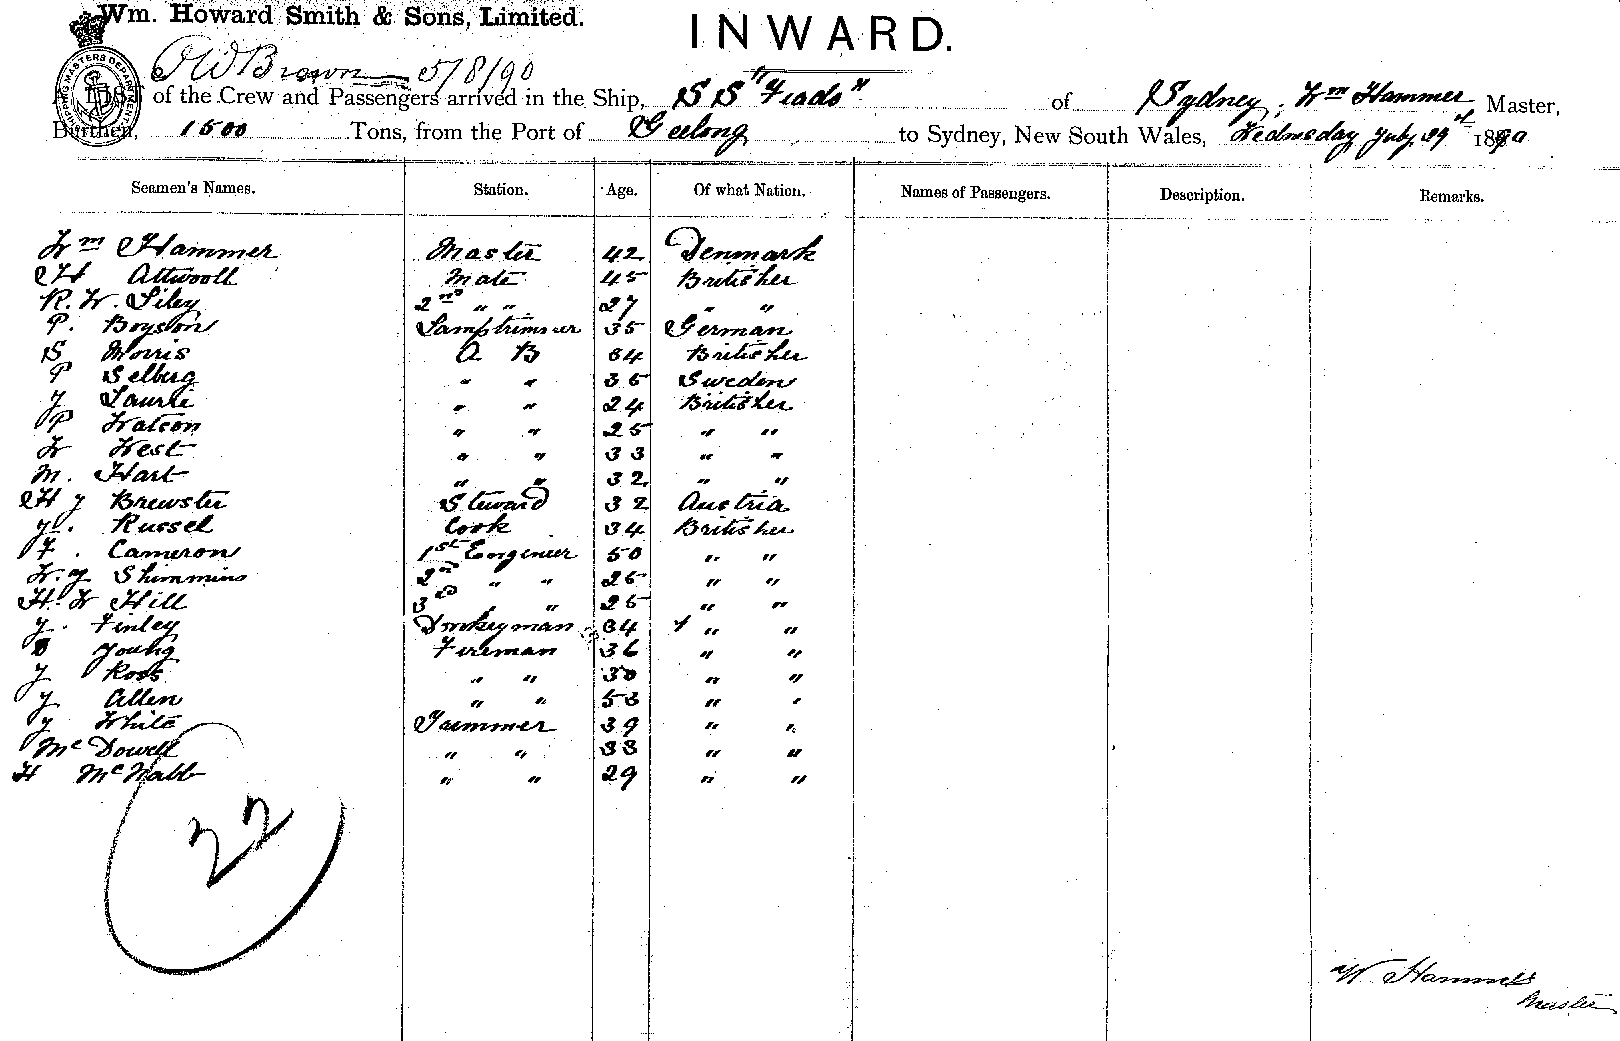 Wm. Howard Smith & Sons, Limited.
INWARD.
5/8/90
A LIST of the Crew and Passengers arrived in the Ship, SS "Fiado" of Sydney, Wm Hammer Master,
Burthen, 1500 Tons, from the Port of Geelong to Sydney, New South Wales, Wednesday July 29th 1890
Seamen's Names. Station. Age. Of what Nation. Names of Passengers. Description. Remarks.
Wm Hammer Master 42 Denmark
H Attwooll Mate 45 Britisher
R. W. Siley 2nd " " 27 " "
P. Boyson Lamptrimmer 35 German
S Morris A B 34 Britisher
P Selberg " " 35 Sweden
J Laurie " " 24 Britisher
P Watson " " 25 " "
W West " " 33 " "
M. Hart " " 32 " "
H J Brewster Steward 32 Austria
J. Russel Cook 34 Britisher
F. Cameron 1st Engineer 50 " "
W. J Shimmins 2nd " " 25 " "
H. W Hill 3rd " " 25 " "
J. Finley Donkeyman 34 " "
Young Fireman 36 " "
J Ross " " 30 " "
J Allen " " 53 " "
J White Trimmer 39 " "
McDowell " " 33 " "
H McNabb " " 29 " "
22
W Hammer
Master